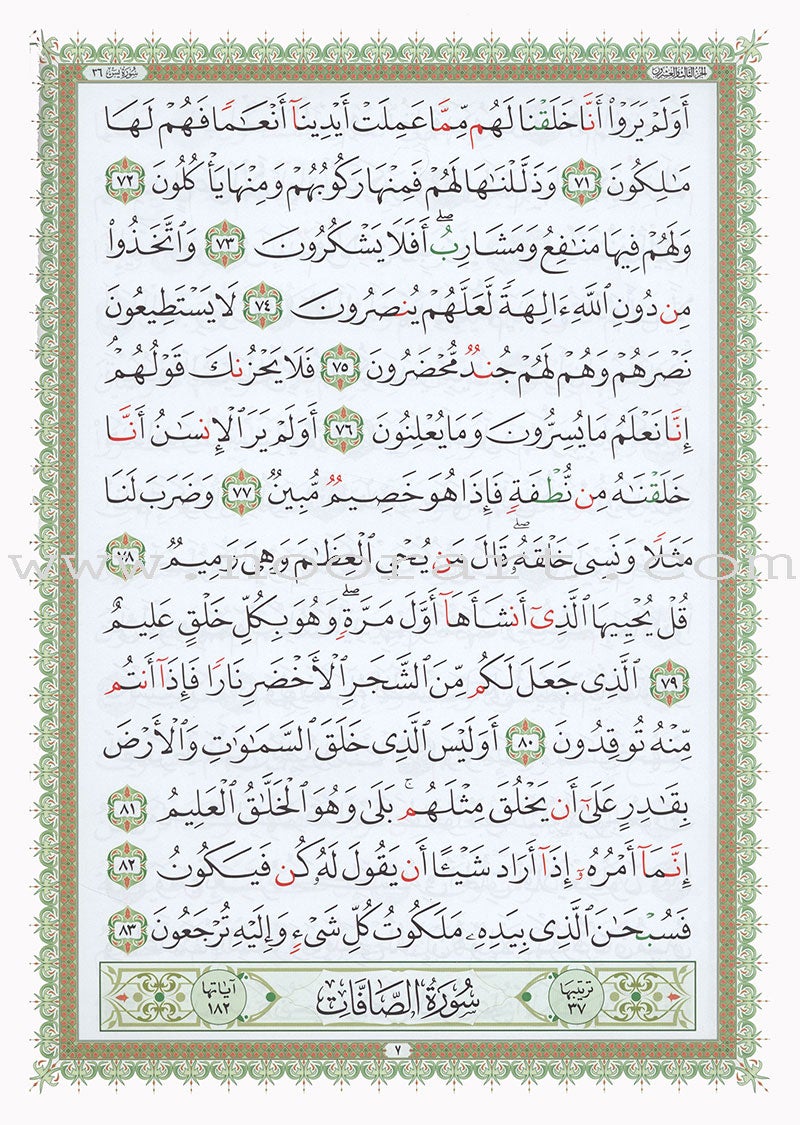 الجزء الثالث والعشرون
سورة يس ٣٦
أَوَلَمْ يَرَوْا۟ أَنَّا خَلَقْنَا لَهُم مِّمَّا عَمِلَتْ أَيْدِينَآ أَنْعَـٰمًا فَهُمْ لَهَا
مَـٰلِكُونَ ٧١ وَذَلَّلْنَـٰهَا لَهُمْ فَمِنْهَا رَكُوبُهُمْ وَمِنْهَا يَأْكُلُونَ ٧٢
وَلَهُمْ فِيهَا مَنَـٰفِعُ وَمَشَارِبُ ۖ أَفَلَا يَشْكُرُونَ ٧٣ وَٱتَّخَذُوا۟
مِن دُونِ ٱللَّهِ ءَالِهَةً لَّعَلَّهُمْ يُنصَرُونَ ٧٤ لَا يَسْتَطِيعُونَ
نَصْرَهُمْ وَهُمْ لَهُمْ جُندٌ مُّحْضَرُونَ ٧٥ فَلَا يَحْزُنكَ قَوْلُهُمْ ۘ
إِنَّا نَعْلَمُ مَا يُسِرُّونَ وَمَا يُعْلِنُونَ ٧٦ أَوَلَمْ يَرَ ٱلْإِنسَـٰنُ أَنَّا
خَلَقْنَـٰهُ مِن نُّطْفَةٍ فَإِذَا هُوَ خَصِيمٌ مُّبِينٌ ٧٧ وَضَرَبَ لَنَا
مَثَلًا وَنَسِىَ خَلْقَهُۥ ۖ قَالَ مَن يُحْىِ ٱلْعِظَـٰمَ وَهِىَ رَمِيمٌ ٧٨
www.noorart.com
قُلْ يُحْيِيهَا ٱلَّذِىٓ أَنشَأَهَآ أَوَّلَ مَرَّةٍ ۖ وَهُوَ بِكُلِّ خَلْقٍ عَلِيمٌ
٧٩ ٱلَّذِى جَعَلَ لَكُم مِّنَ ٱلشَّجَرِ ٱلْأَخْضَرِ نَارًا فَإِذَآ أَنتُم
مِّنْهُ تُوقِدُونَ ٨٠ أَوَلَيْسَ ٱلَّذِى خَلَقَ ٱلسَّمَـٰوَٰتِ وَٱلْأَرْضَ
بِقَـٰدِرٍ عَلَىٰٓ أَن يَخْلُقَ مِثْلَهُم ۚ بَلَىٰ وَهُوَ ٱلْخَلَّـٰقُ ٱلْعَلِيمُ ٨١
إِنَّمَآ أَمْرُهُۥٓ إِذَآ أَرَادَ شَيْـًٔا أَن يَقُولَ لَهُۥ كُن فَيَكُونُ ٨٢
فَسُبْحَـٰنَ ٱلَّذِى بِيَدِهِۦ مَلَكُوتُ كُلِّ شَىْءٍ وَإِلَيْهِ تُرْجَعُونَ ٨٣
ترتيبها ٣٧ سُورَةُ الصَّافَّاتِ آياتها ١٨٢
٧